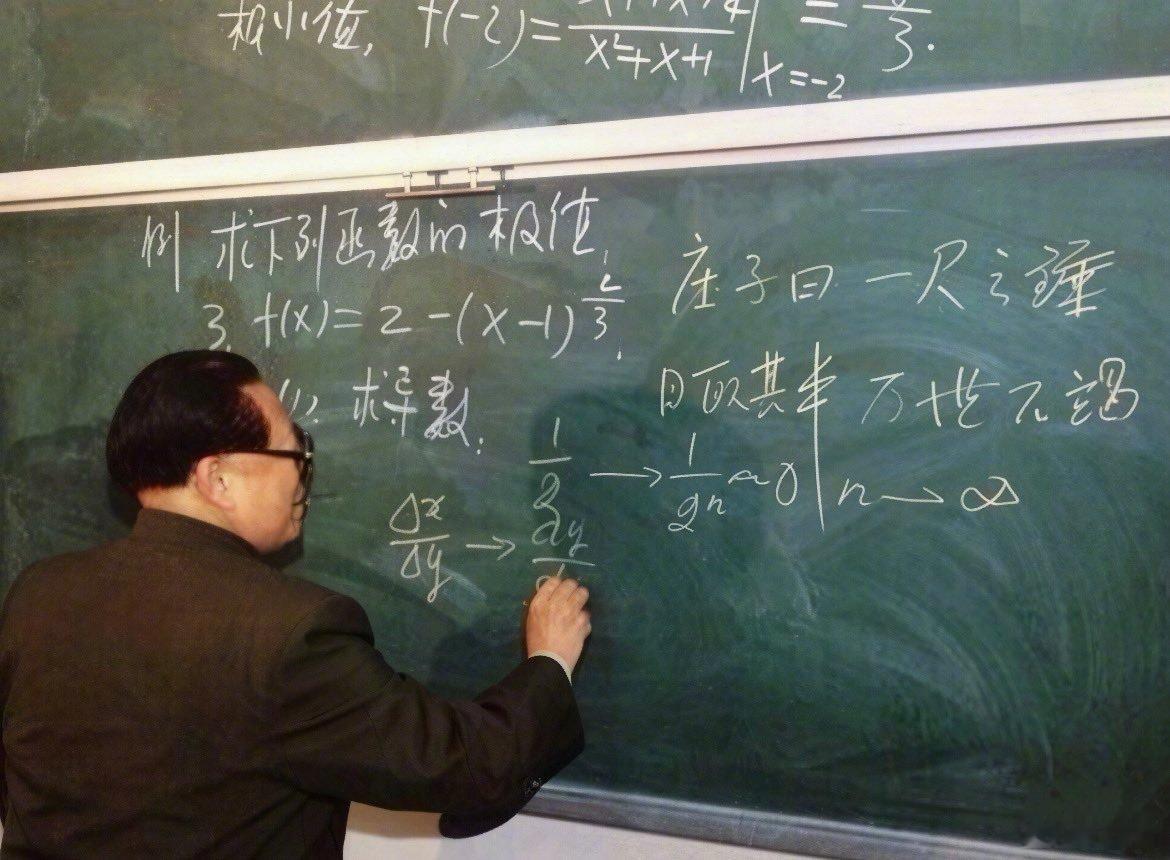 极小值, f(-2) = x²+x+1 |x=-2 = 3.
例 求下列函数的极值.
3. f(x) = 2 - (x-1)^(2/3).
求导数.
庄子曰 一尺之锤
日取其半 万世不竭
1/2 → 1/2ⁿ ~ 0 | n → ∞
Δx/Δy → dy/d